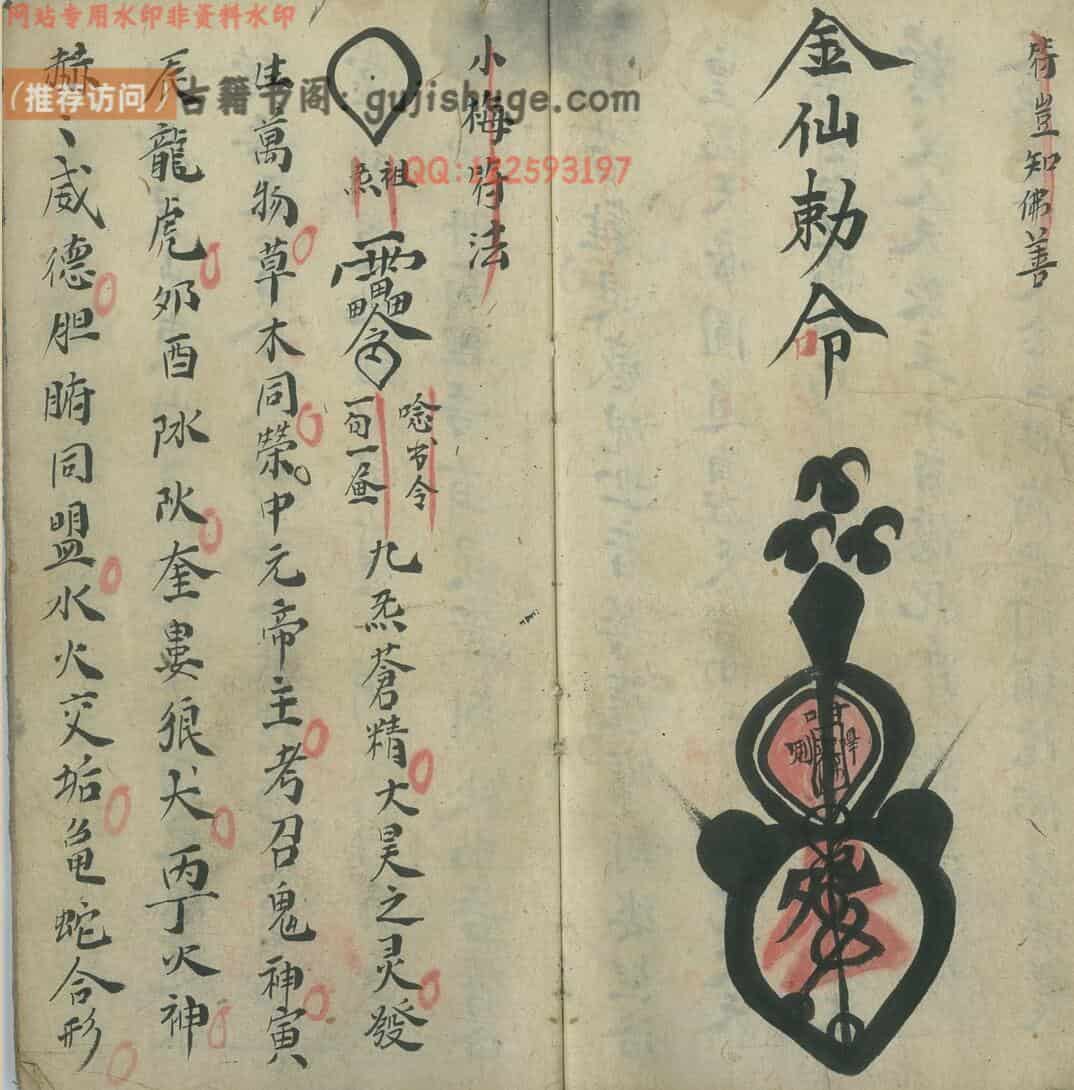 符豈知佛善
金仙勅命
小梅符法
祖炁
唸书令
一句一画
九炁蒼精大昊之灵發
生萬物草木同榮中元帝主考召鬼神寅
辰龍虎夘酉
奎婁狼犬丙丁火神
赫〻威德胆腑同盟水火交垢龟蛇合形
网站专用水印非资料水印
（推荐访问）古籍书阁: gujishuge.com